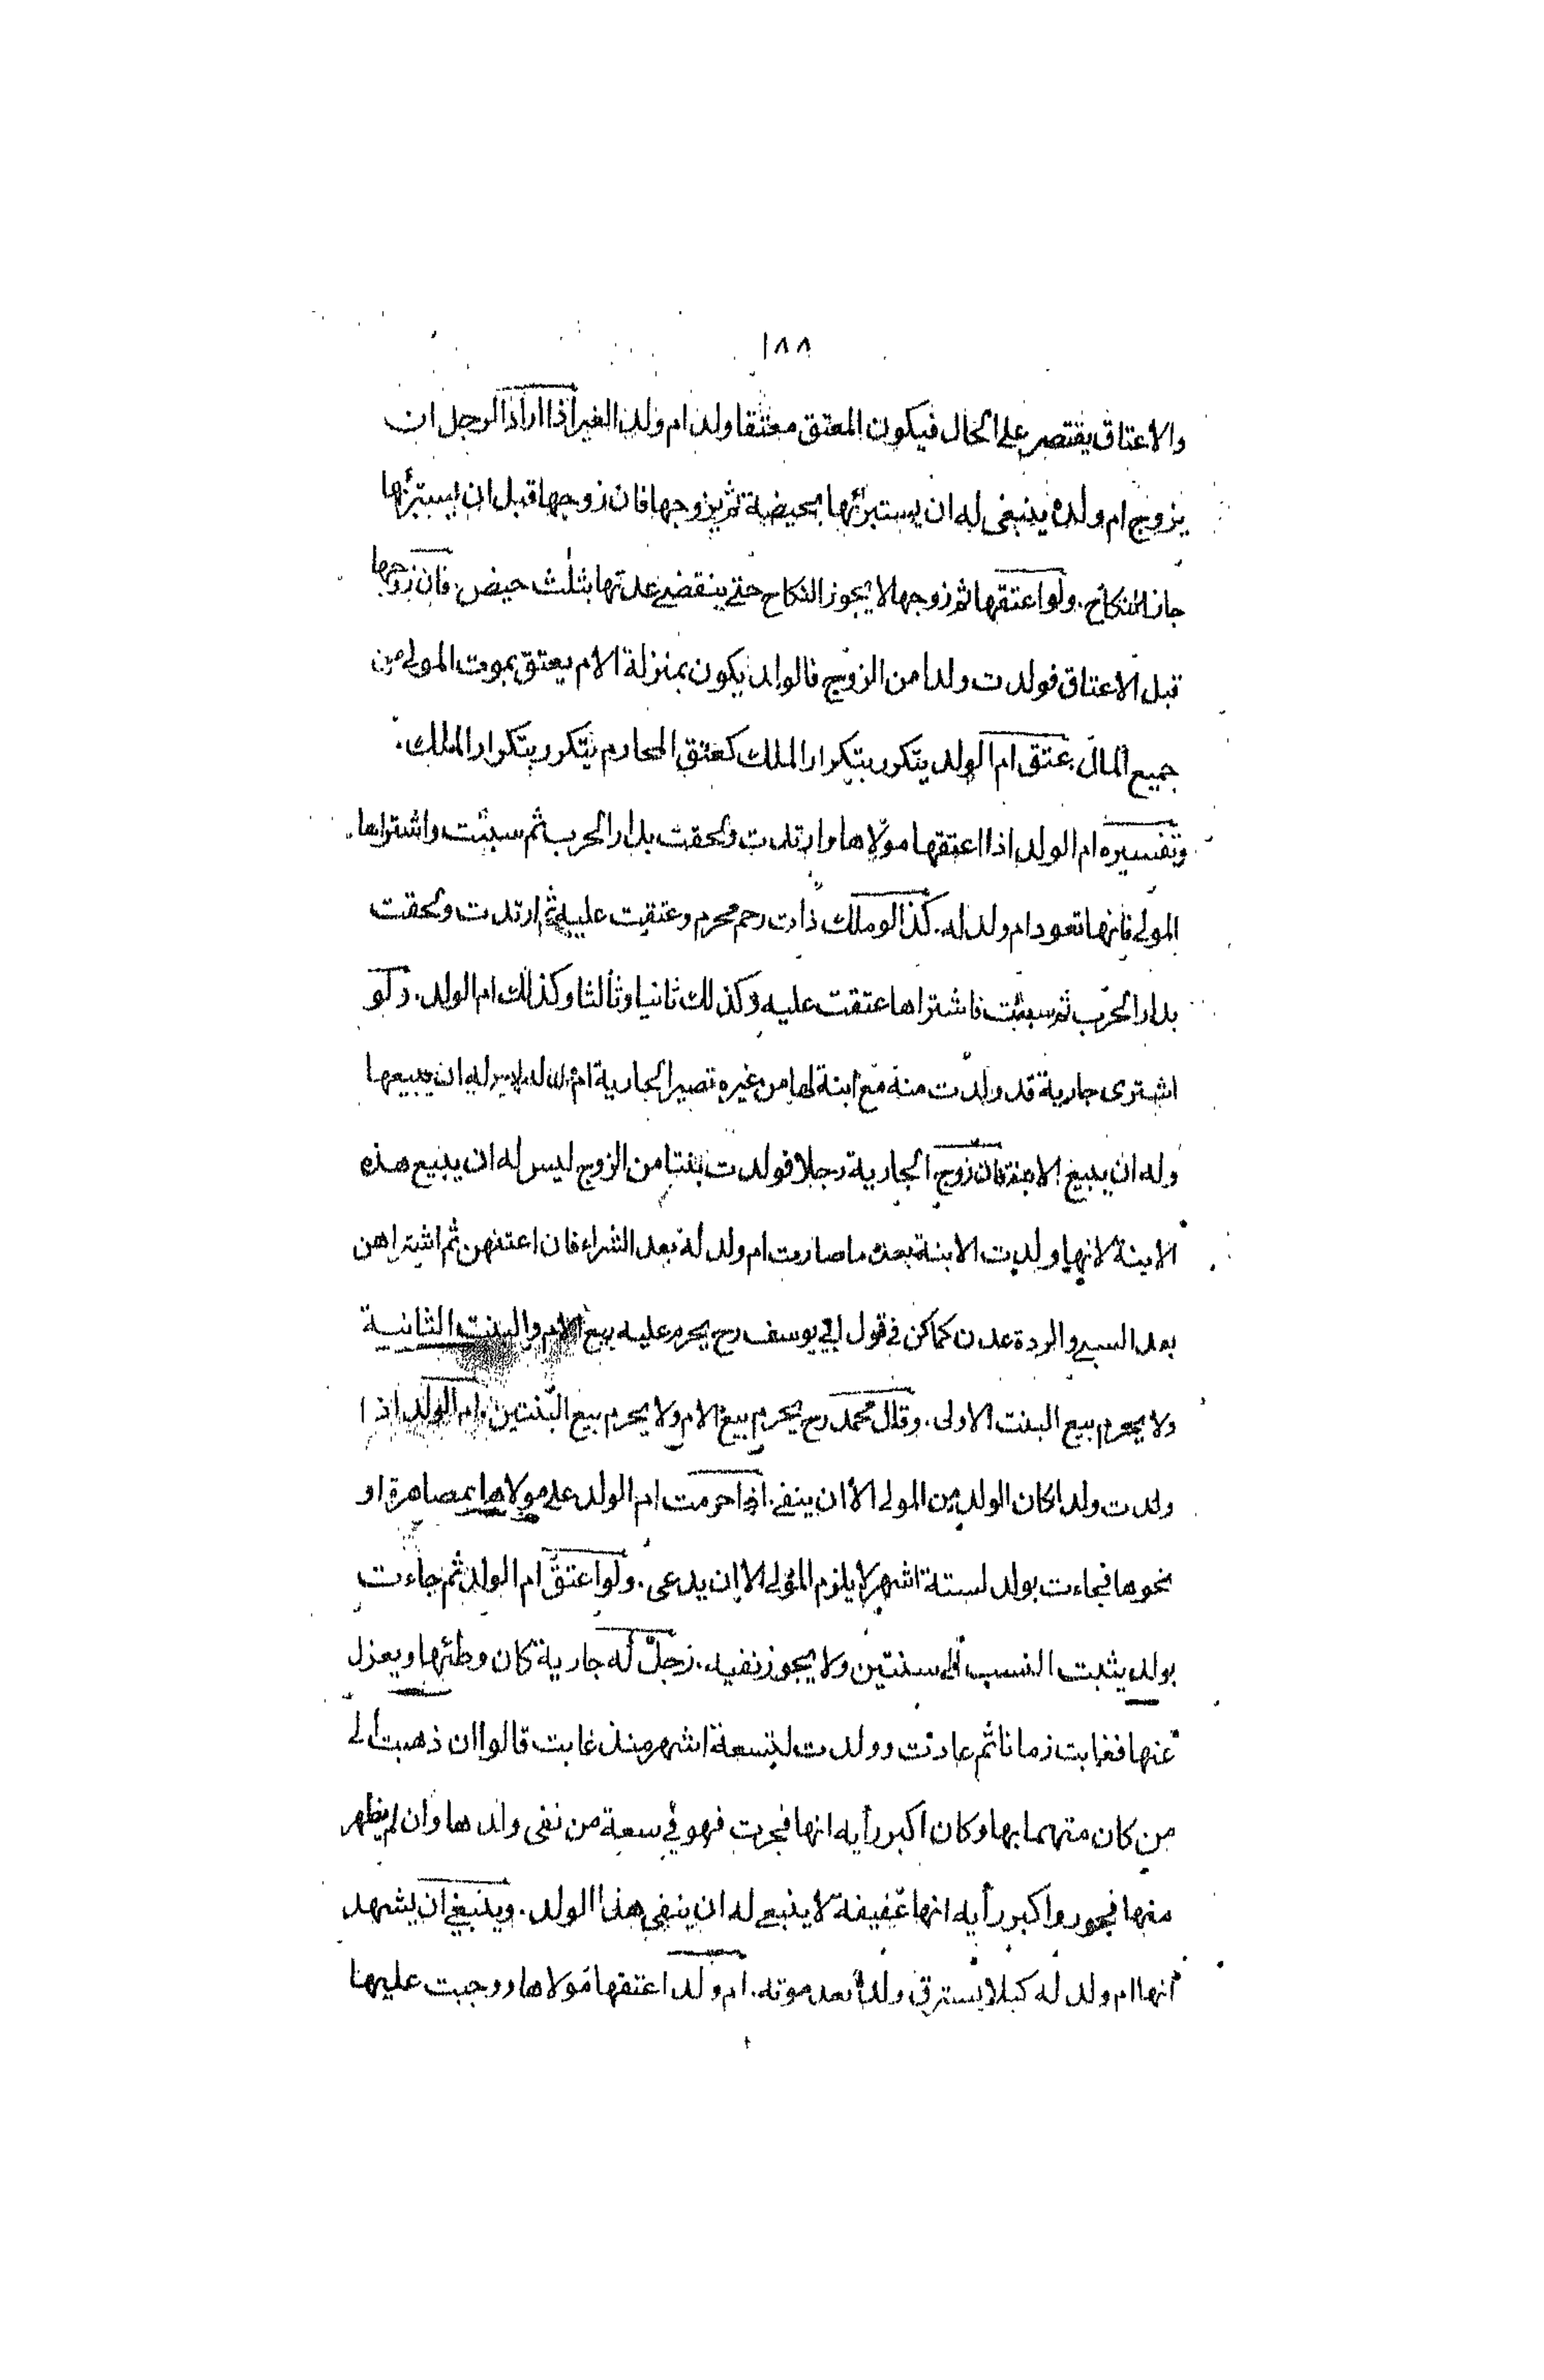 ١٨٨
والاعتاق يقتصر على الحال فيكون المعتق معتقا ولد ام ولد الغير اذا اراد الرجل ان
يزوج ام ولده ينبغى له ان يستبرئها بحيضة ثم يزوجها فان زوجها قبل ان يستبرئها
جاز النكاح. ولو اعتقها ثم زوجها لا يجوز النكاح حتى ينقضى عدتها بثلث حيض. فان زوجها
قبل الاعتاق فولدت ولدا من الزوج فالولد يكون بمنزلة الام يعتق بموت المولى من
جميع المال. عتق ام الولد يتكرر بتكرار الملك كعتق المحارم يتكرر بتكرار الملك.
وتفسيره ام الولد اذا اعتقها مولاها وارتدت ولحقت بدار الحرب ثم سبئت واشتراها
المولى فانها تعود ام ولد له. كذا لو ملك ذات رحم محرم وعتقت عليه ثم ارتدت ولحقت
بدار الحرب ثم سبئت فاشتراها عتقت عليه وكذلك ثانيا وثالثا وكذلك ام الولد. ولو
اشترى جارية قد ولدت منه مع ابنة لها من غيره تصير الجارية ام له ان يبيعها
وله ان يبيع الابنة فان زوج الجارية رجلا فولدت بنتا من الزوج ليس له ان يبيع هذه
الابنة لانها ولدت الابنة بعد ما صارت ام ولد له بعد الشراء فان اعتقهن ثم اشتراهن
بعد السبى والردة عدن كما كن فى قول ابى يوسف رح يحرم عليه بيع الام والبنت الثانية
ولا يحرم بيع البنت الاولى. وقال محمد رح يحرم بيع الام ولا يحرم بيع البنتين. ام الولد اذا
ولدت ولدا كان الولد من المولى الا ان ينفى. اذا حرمت ام الولد على مولاها بمصاهرة او
نحوها فجاءت بولد لستة اشهر لا يلزم المولى الا ان يدعى. ولو اعتق ام الولد ثم جاءت
بولد يثبت النسب الى سنتين ولا يجوز نفيه. رجل له جارية كان وطئها ويعزل
عنها فغابت زمانا ثم عادت وولدت لتسعة اشهر منذ غابت قالوا ان ذهبت الى
من كان متهما بها وكان اكبر رأيه انها فجرت فهو فى سعة من نفى ولدها وان لم يظهر
منها فجور واكبر رأيه انها عفيفة لا ينبغى له ان ينفى هذا الولد. وينبغى ان يشهد
انها ام ولد له كيلا يسترق ولده بعد موته. ام ولد اعتقها مولاها ووجبت عليها